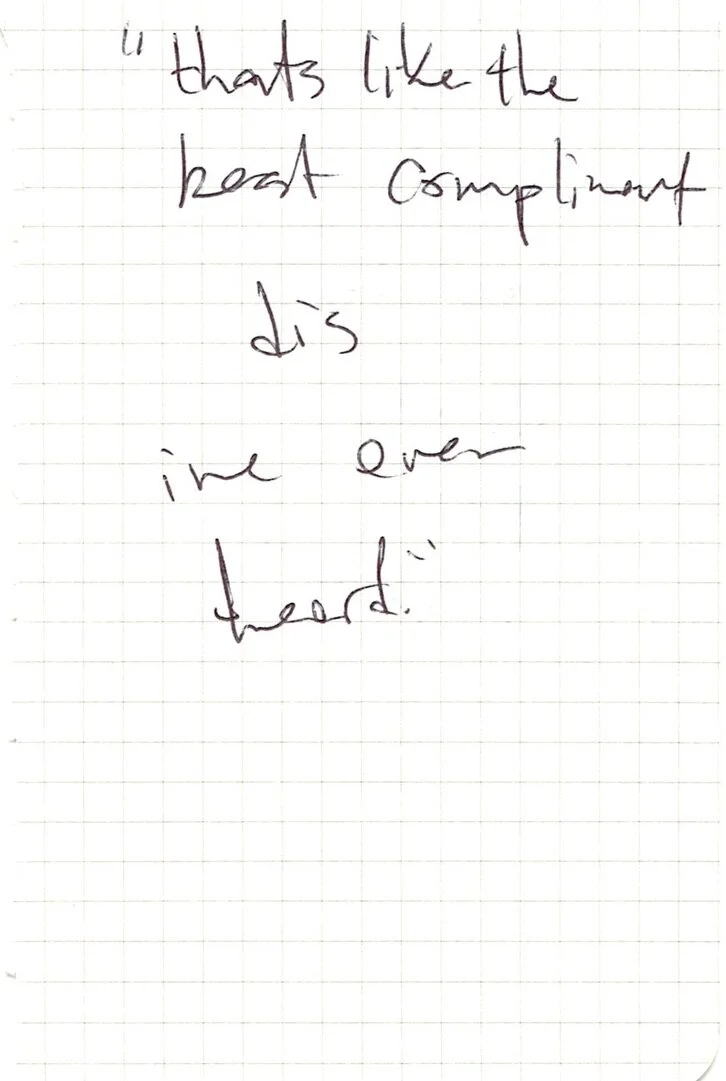 "thats like the
best compliment
dis
ive ever
heard."